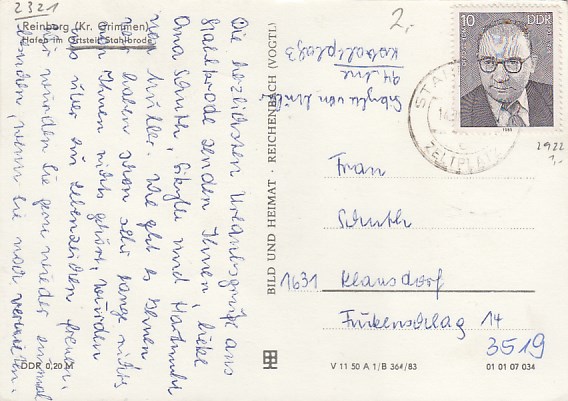 2321
Reinberg (Kr. Grimmen)
Hafen im Ortsteil Stahlbrode
Die herzlichsten Urlaubsgrüße aus
Stahlbrode senden Ihnen, liebe
Oma Schuth, Sibylle und Hartmut
von Müller. Wie geht es Ihnen
wir haben schon sehr lange nichts
von Ihnen gehört, würden
uns über ein Lebenszeichen freuen.
Wir würden Sie gern wieder einmal
besuchen, wenn Sie noch vermieten.
DDR 0,20 M
BILD UND HEIMAT · REICHENBACH (VOGTL)
2,-
Sibylle von Müller
Koboldtplatz 3
10 DDR
STAHL
ZELTPLATZ
2922
1,-
Frau
Schuth
1631 Klausdorf
Finkenschlag 14
3519
V 11 50 A 1/B 364/83
01 01 07 034